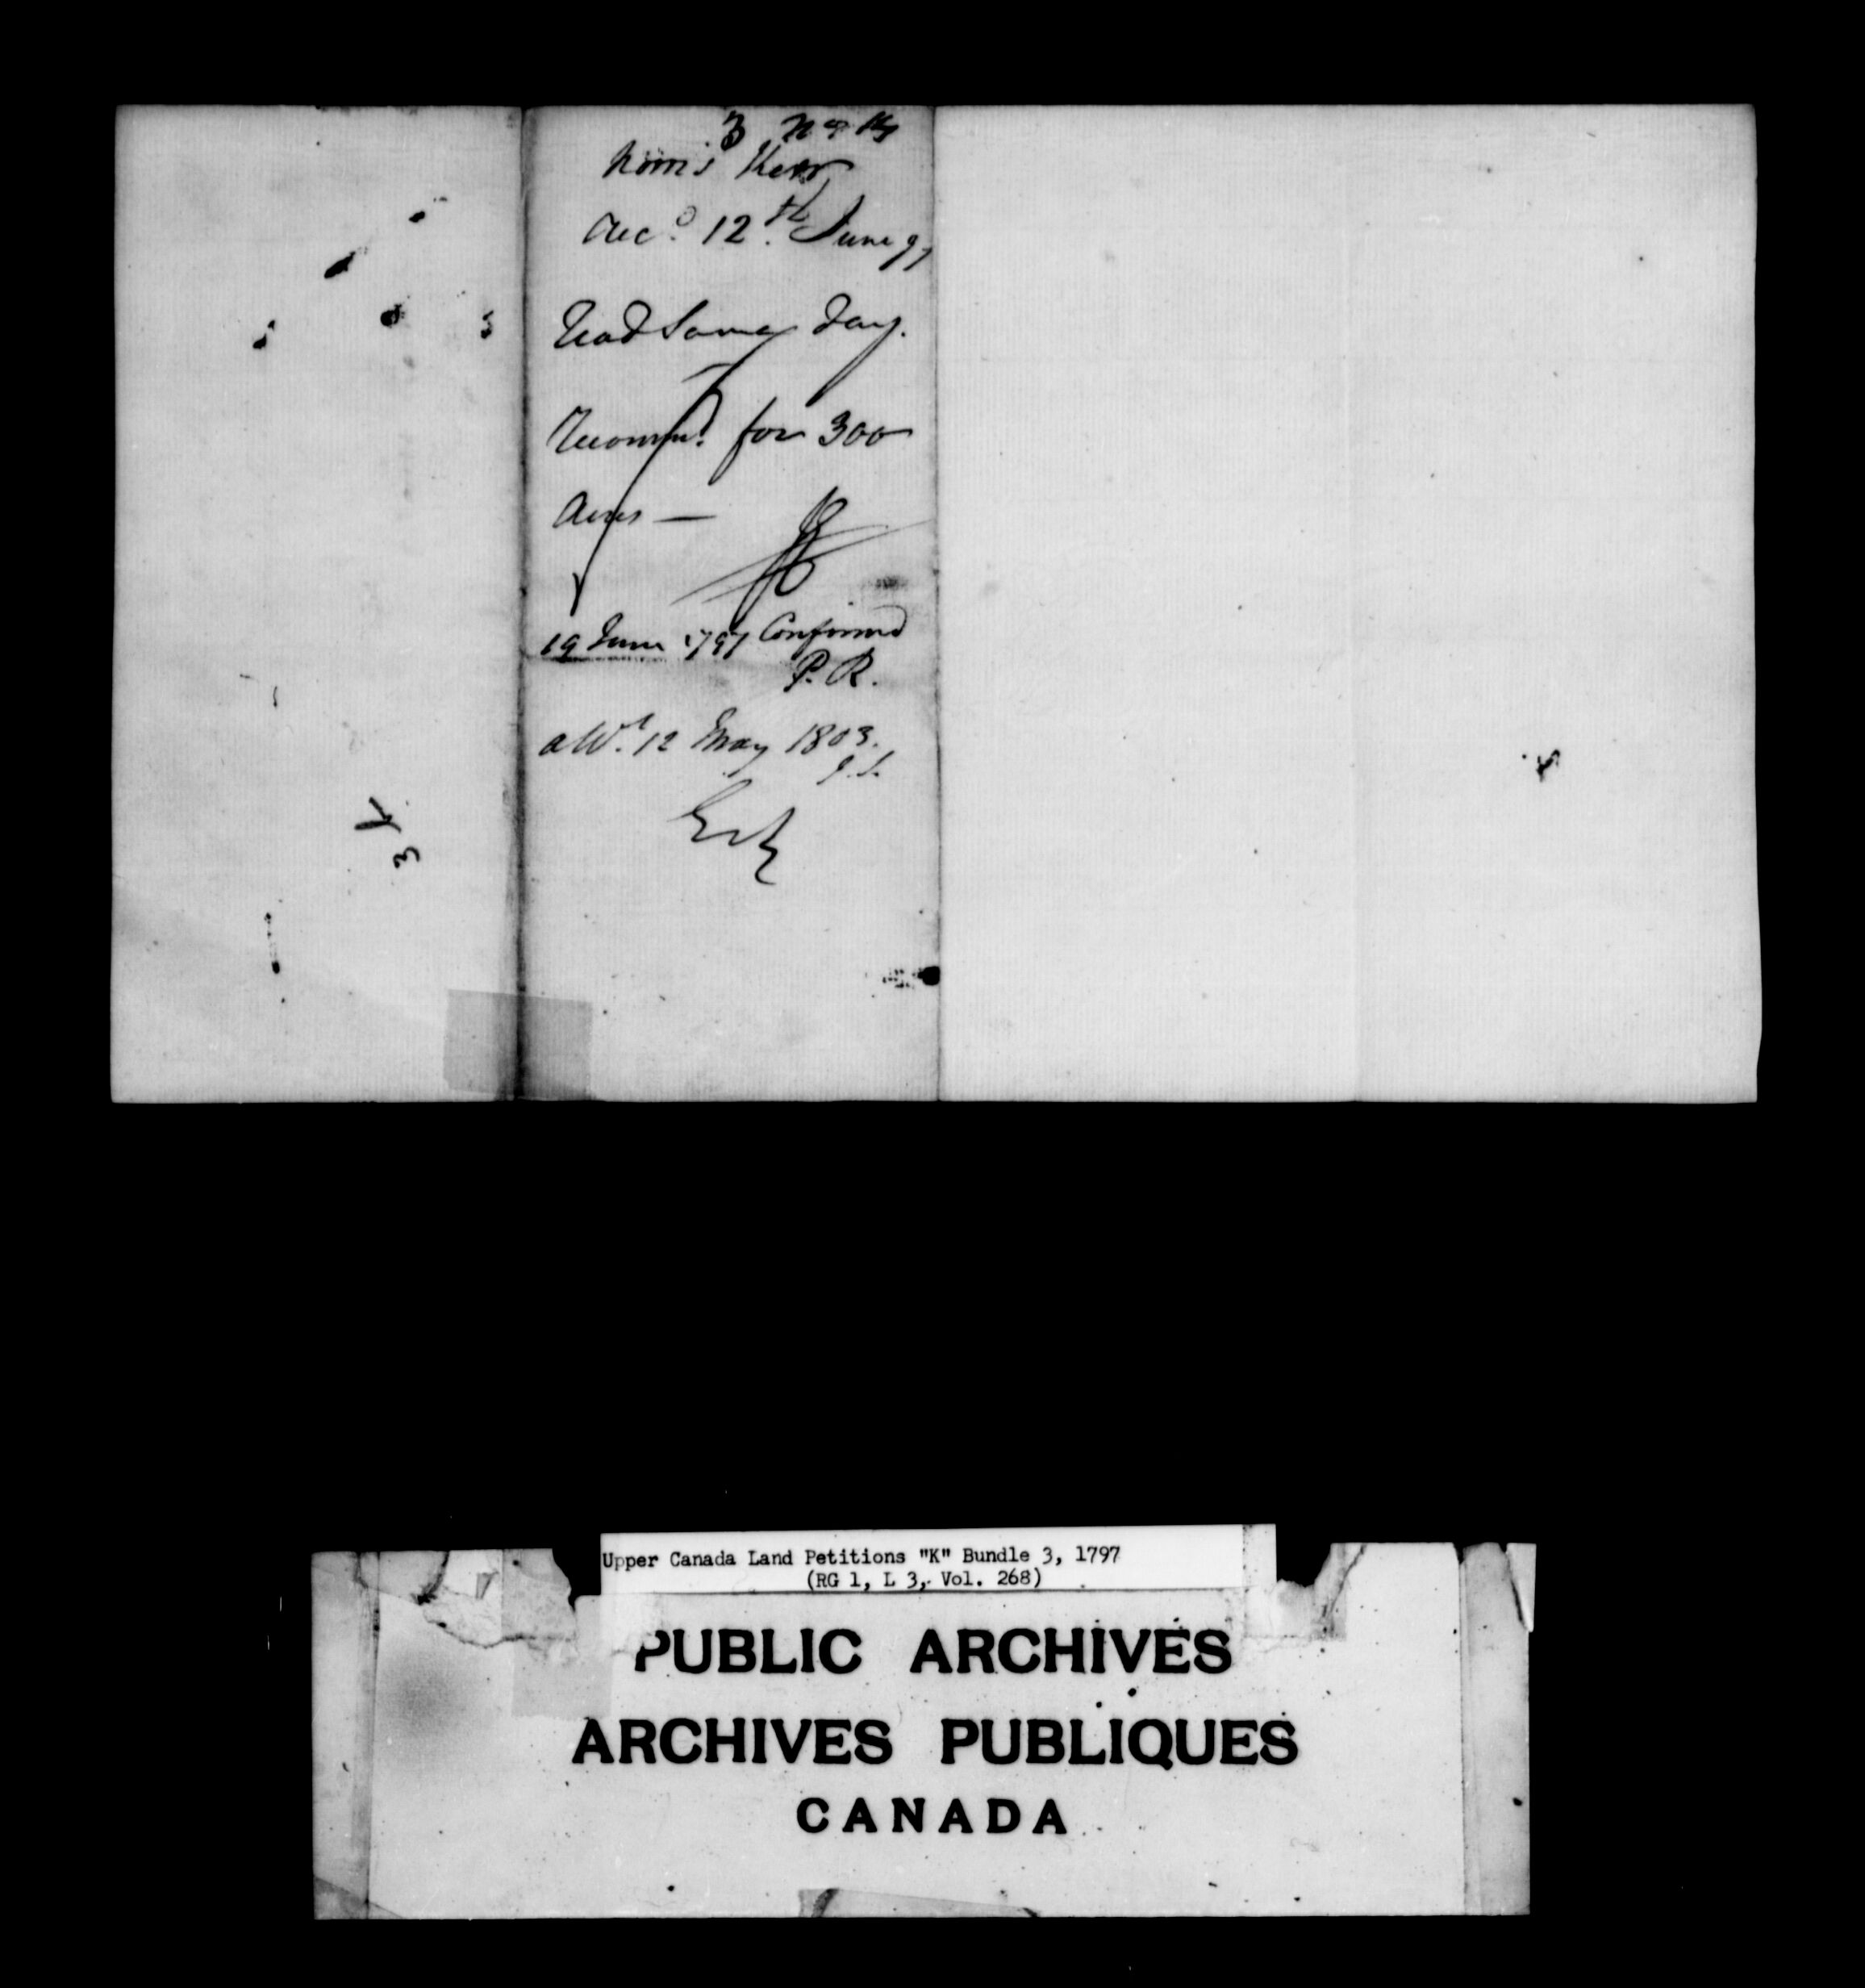 3 No 14
Norris Karr
Recd. 12th. June 97
Read Same Day.
Recommd. for 300
Acres —
19 June 1797 Confirmed
P. R.
a Wt. 12 May 1803.
J. S.
K
3
Upper Canada Land Petitions "K" Bundle 3, 1797
(RG 1, L 3, Vol. 268)
PUBLIC ARCHIVES
ARCHIVES PUBLIQUES
CANADA